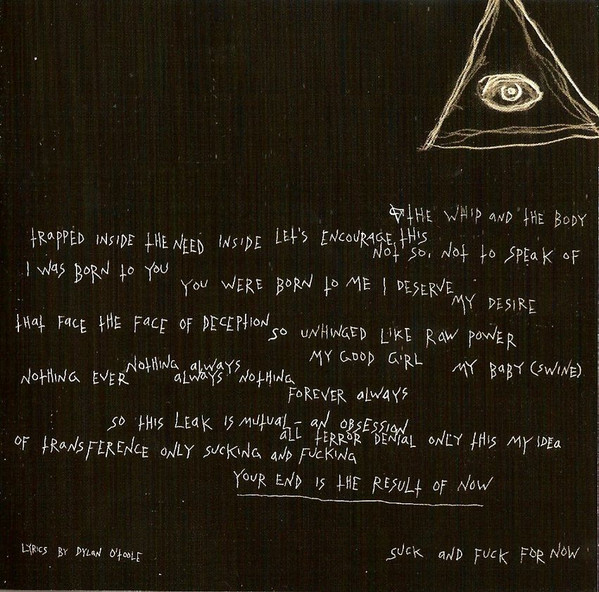 THE WHIP AND THE BODY
TRAPPED INSIDE THE NEED INSIDE LET'S ENCOURAGE THIS
NOT SO, NOT TO SPEAK OF
I WAS BORN TO YOU
YOU WERE BORN TO ME I DESERVE
MY DESIRE
THAT FACE THE FACE OF DECEPTION
SO UNHINGED LIKE RAW POWER
MY GOOD GIRL
MY BABY (SWINE)
NOTHING ALWAYS
NOTHING EVER
ALWAYS NOTHING
FOREVER ALWAYS
SO THIS LEAK IS MUTUAL - AN OBSESSION
ALL TERROR DENIAL ONLY THIS MY IDEA
OF TRANSFERENCE ONLY SUCKING AND FUCKING
YOUR END IS THE RESULT OF NOW
LYRICS BY DYLAN O'TOOLE
SUCK AND FUCK FOR NOW